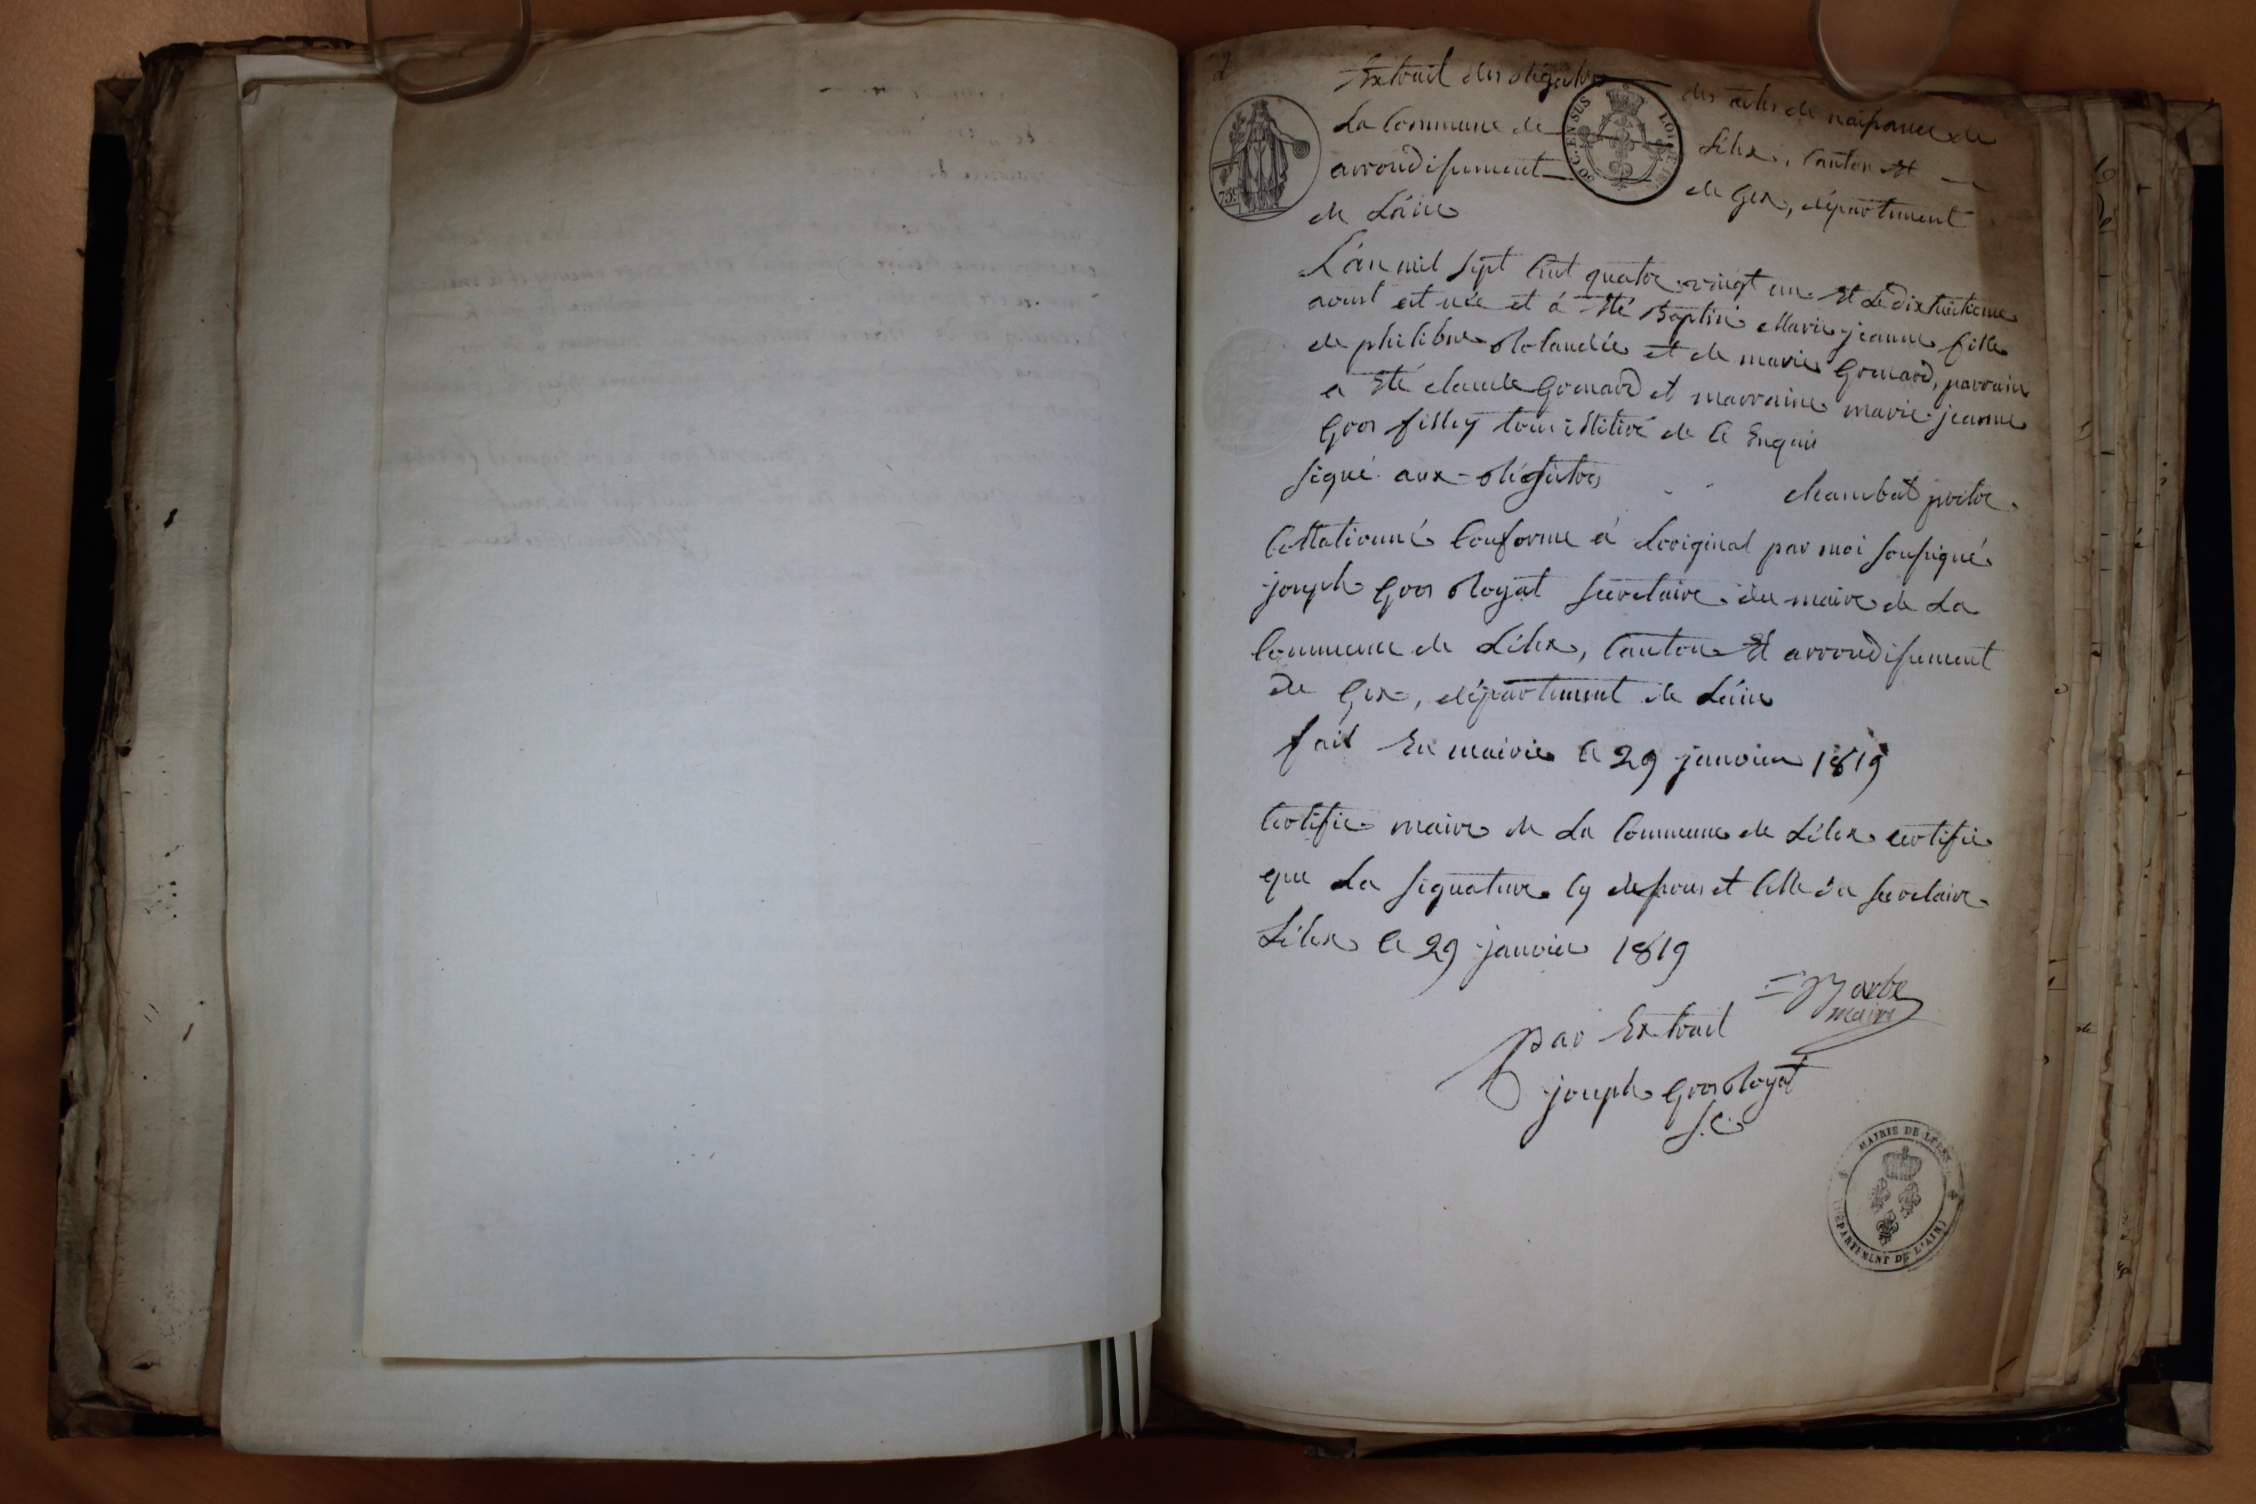 2
Extrait des Régistres des actes de naissance de
La Commune de Lélex, Canton et
arrondissement de Gex, département
de L'ain
75 c
50 C. EN SUS
L'an mil sept cent quatre vingt un et Le dixhuitieme
aoust est née et à été Baptisé Marie jeanne fille
de philibert Rolandée et de marie Gronard, parrain
a été claude Gronard et marraine marie jeanne
Gros fillex tous de ce Enquis
signé aux Régistres chambat pretre
Collationné Conforme à L'original par moi soussigné
joseph Gros Royat secretaire du maire de La
Commune de Lélex, Canton Et arrondissement
De Gex, département de L'ain
fait En mairie le 29 janvier 1819
Certifie maire de La Commune de Lélex certifie
que La signature cy dessous et Celle du secretaire
Lélex le 29 janvier 1819
maire
par Extrait
joseph Gros Royat
S.C.
MAIRIE DE LELEX
(DÉPARTEMENT DE L'AIN)